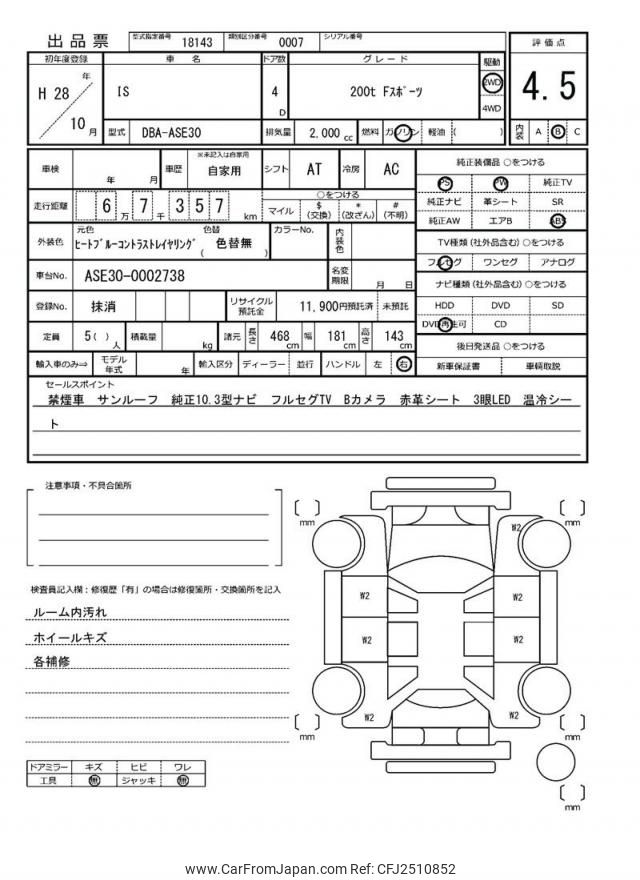 出品票 型式指定番号 18143 類別区分番号 0007 シリアル番号
初年度登録 車 名 ドア数 グレード 駆動 評価点
H 28 年 10 月 IS 4 D 200t Fスポーツ 2WD 4WD 4.5
型式 DBA-ASE30 排気量 2,000 cc 燃料 ガソリン 軽油 ( ) 内装 A B C
車検 年 月 車歴 ※未記入は自家用 自家用 シフト AT 冷房 AC 純正装備品 ○をつける
PS PW 純正TV
走行距離 6 万 7 千 3 5 7 km ○をつける マイル $ (交換) * (改ざん) # (不明) 純正ナビ 革シート SR
純正AW エアB ABS
外装色 元色 ヒートブルーコントラストレイヤリング 色替 色替無 ( ) カラーNo. 内装色 TV種類 (社外品含む) ○をつける
フルセグ ワンセグ アナログ
車台No. ASE30-0002738 名変期限 月 日 ナビ種類 (社外品含む) ○をつける
登録No. 抹消 リサイクル預託金 11,900円預託済 未預託 HDD DVD SD
DVD再生可 CD
定員 5( ) 人 積載量 kg 諸元 長さ 468 cm 幅 181 cm 高さ 143 cm 後日発送品 ○をつける
輸入車のみ⇒ モデル年式 年 輸入区分 ディーラー 並行 ハンドル 左 右 新車保証書 車輌取説
セールスポイント
禁煙車 サンルーフ 純正10.3型ナビ フルセグTV Bカメラ 赤革シート 3眼LED 温冷シー
ト
注意事項・不具合箇所
検査員記入欄:修復歴「有」の場合は修復箇所・交換箇所を記入
ルーム内汚れ
ホイールキズ
各補修
ドアミラー キズ ヒビ ワレ
工具 無 ジャッキ 無
mm
mm
W2
W2
W2
W2
W2
W2
W2
mm
mm
mm
www.CarFromJapan.com Ref: CFJ2510852